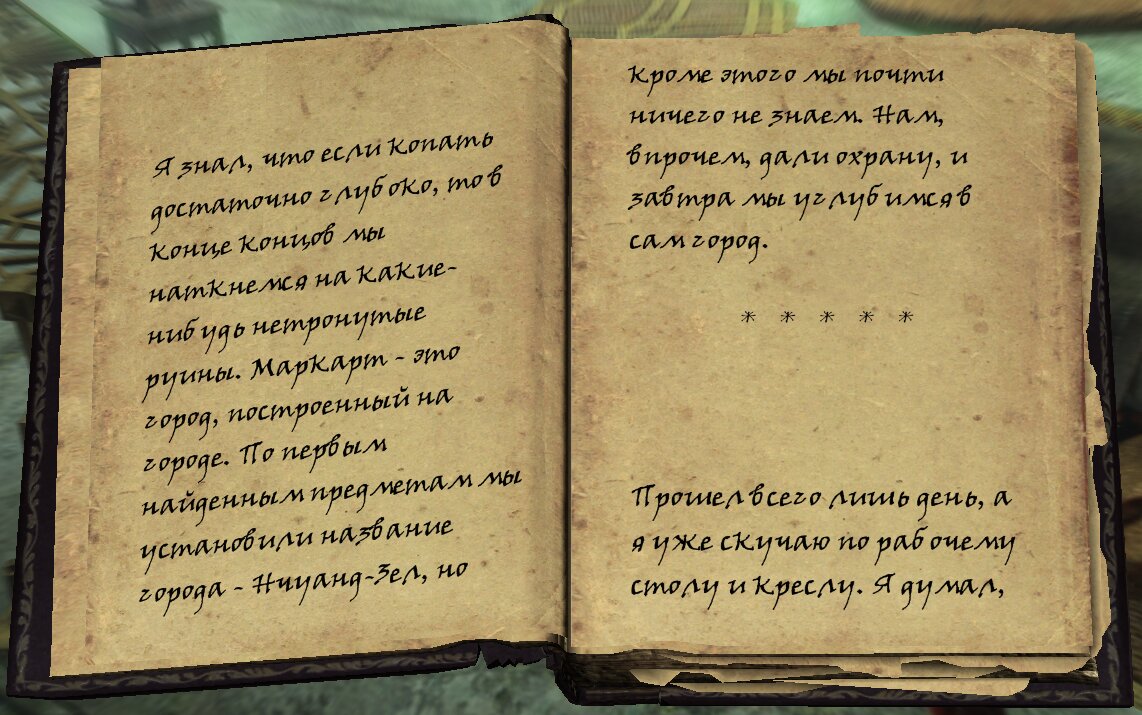 Я знал, что если копать
достаточно глубоко, то в
конце концов мы
наткнемся на какие-
нибудь нетронутые
руины. Маркарт - это
город, построенный на
городе. По первым
найденным предметам мы
установили название
города - Нчуанд-Зел, но
Кроме этого мы почти
ничего не знаем. Нам,
впрочем, дали охрану, и
завтра мы углубимся в
сам город.
* * * * *
Прошел всего лишь день, а
я уже скучаю по рабочему
столу и креслу. Я думал,